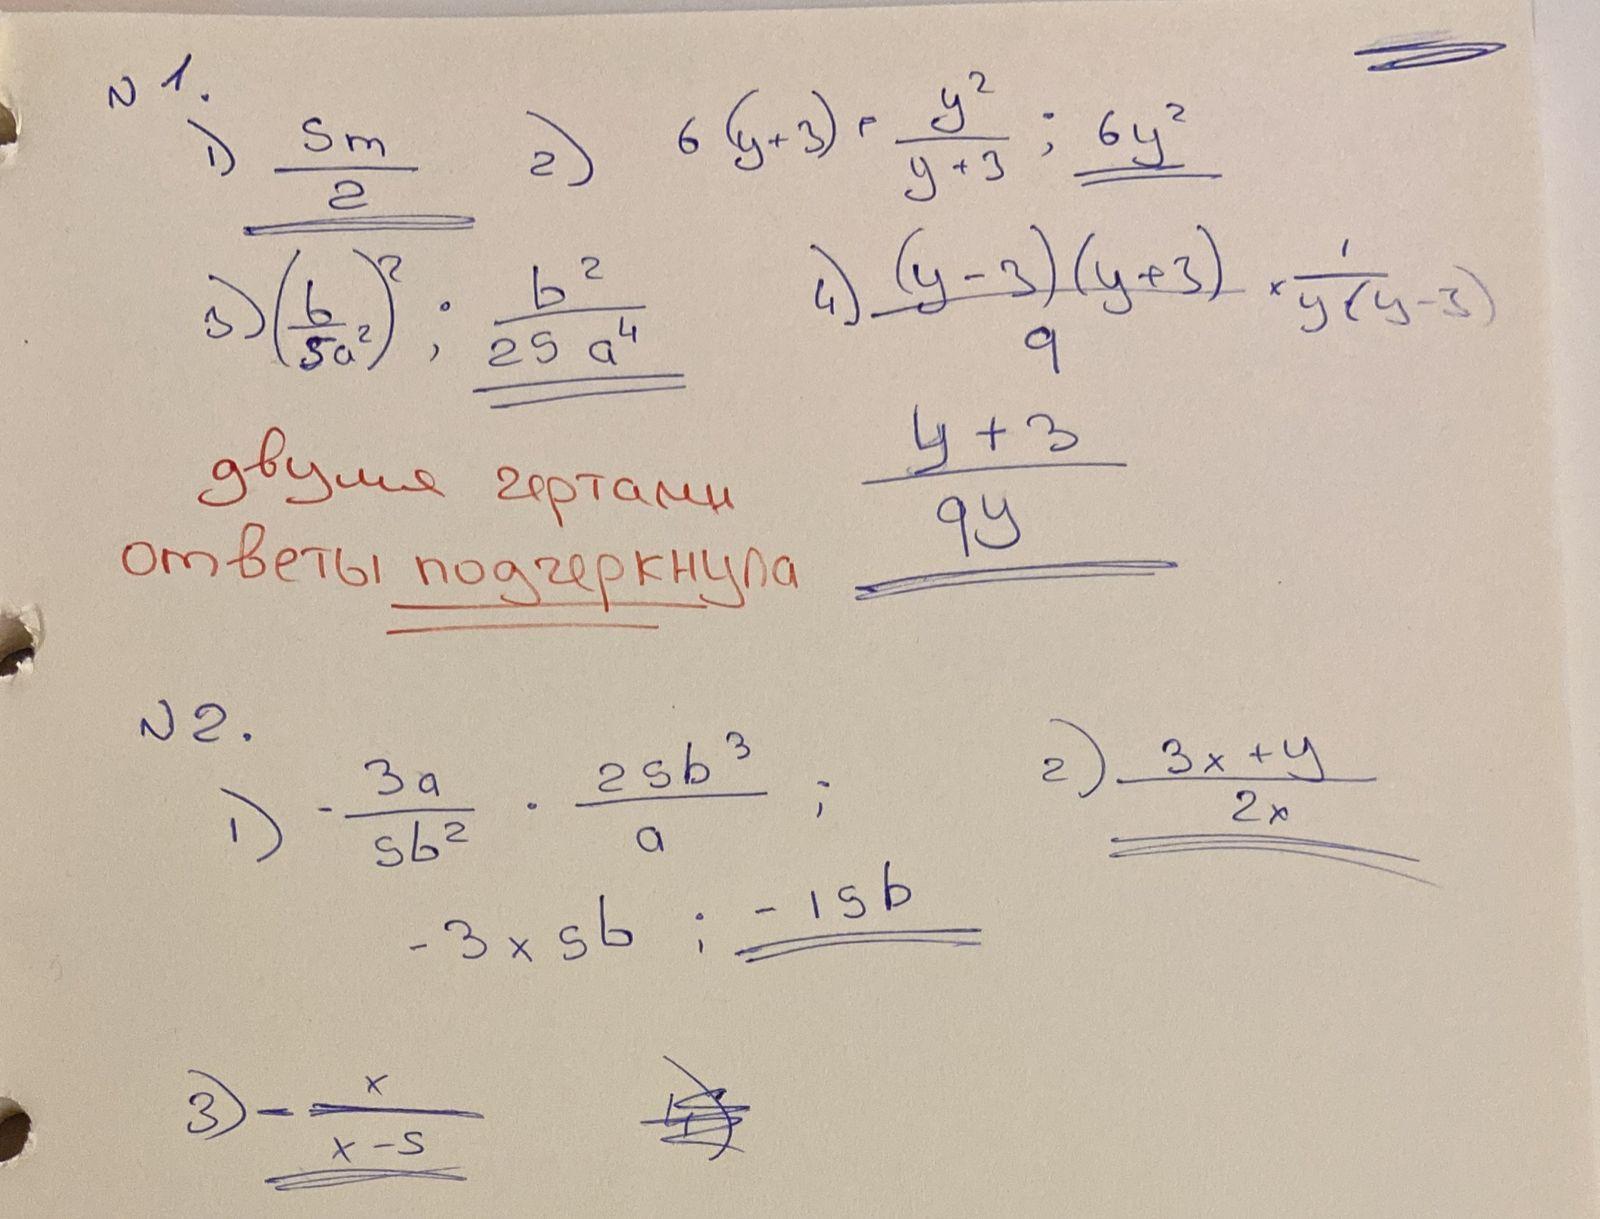 N 1.
1) 5m/2 2) 6(y+3) · y²/(y+3) ; 6y²
3) (b/5a²)² ; b²/25a⁴ 4) (y-3)(y+3)/9 × 1/y(y-3)
y+3/9y
двумя чертами
ответы подчеркнула
N 2.
1) - 3a/5b² · 25b³/a ; 2) 3x+y/2x
-3 x 5b ; -15b
3) - x/x-5